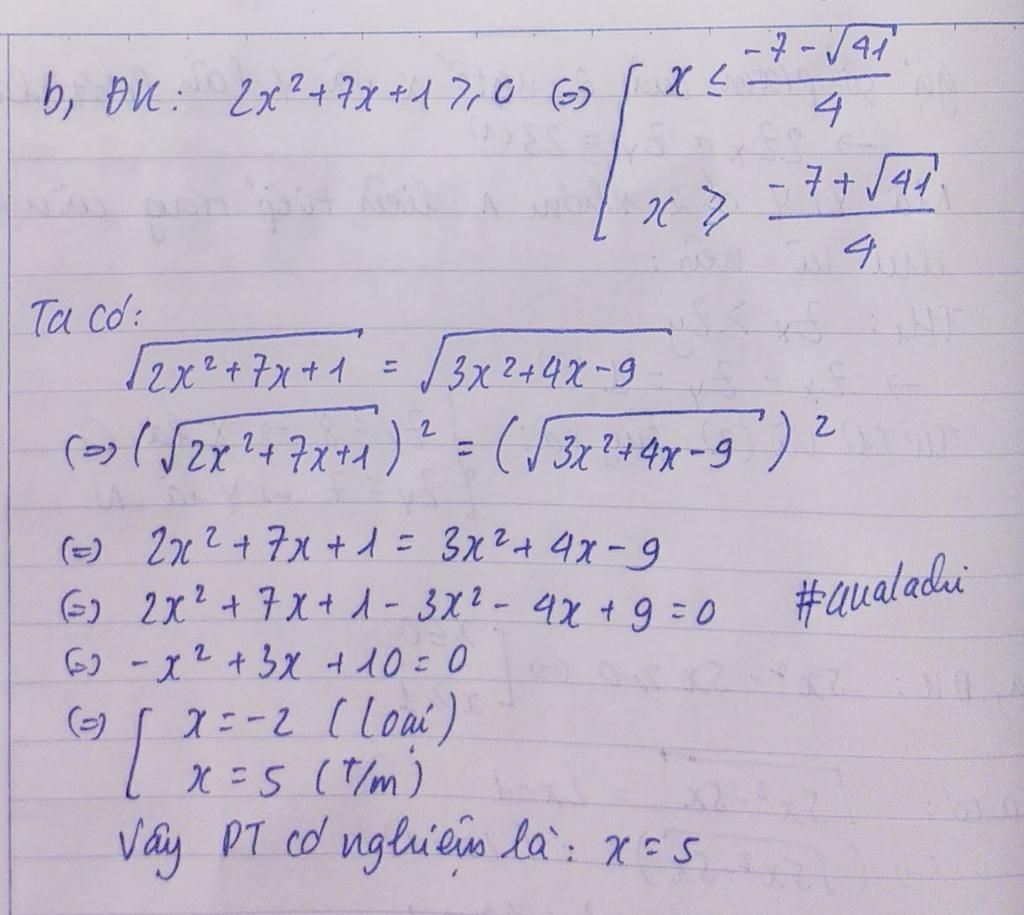 b, ĐK: 2x² + 7x + 1 ≥ 0 (=) [ x ≤ (-7 - √41)/4
x ≥ (-7 + √41)/4
Ta có:
√(2x² + 7x + 1) = √(3x² + 4x - 9)
(=) (√(2x² + 7x + 1))² = (√(3x² + 4x - 9))²
(=) 2x² + 7x + 1 = 3x² + 4x - 9
(=) 2x² + 7x + 1 - 3x² - 4x + 9 = 0
(=) -x² + 3x + 10 = 0
(=) [ x = -2 (loại)
x = 5 (T/m)
Vậy PT có nghiệm là: x = 5